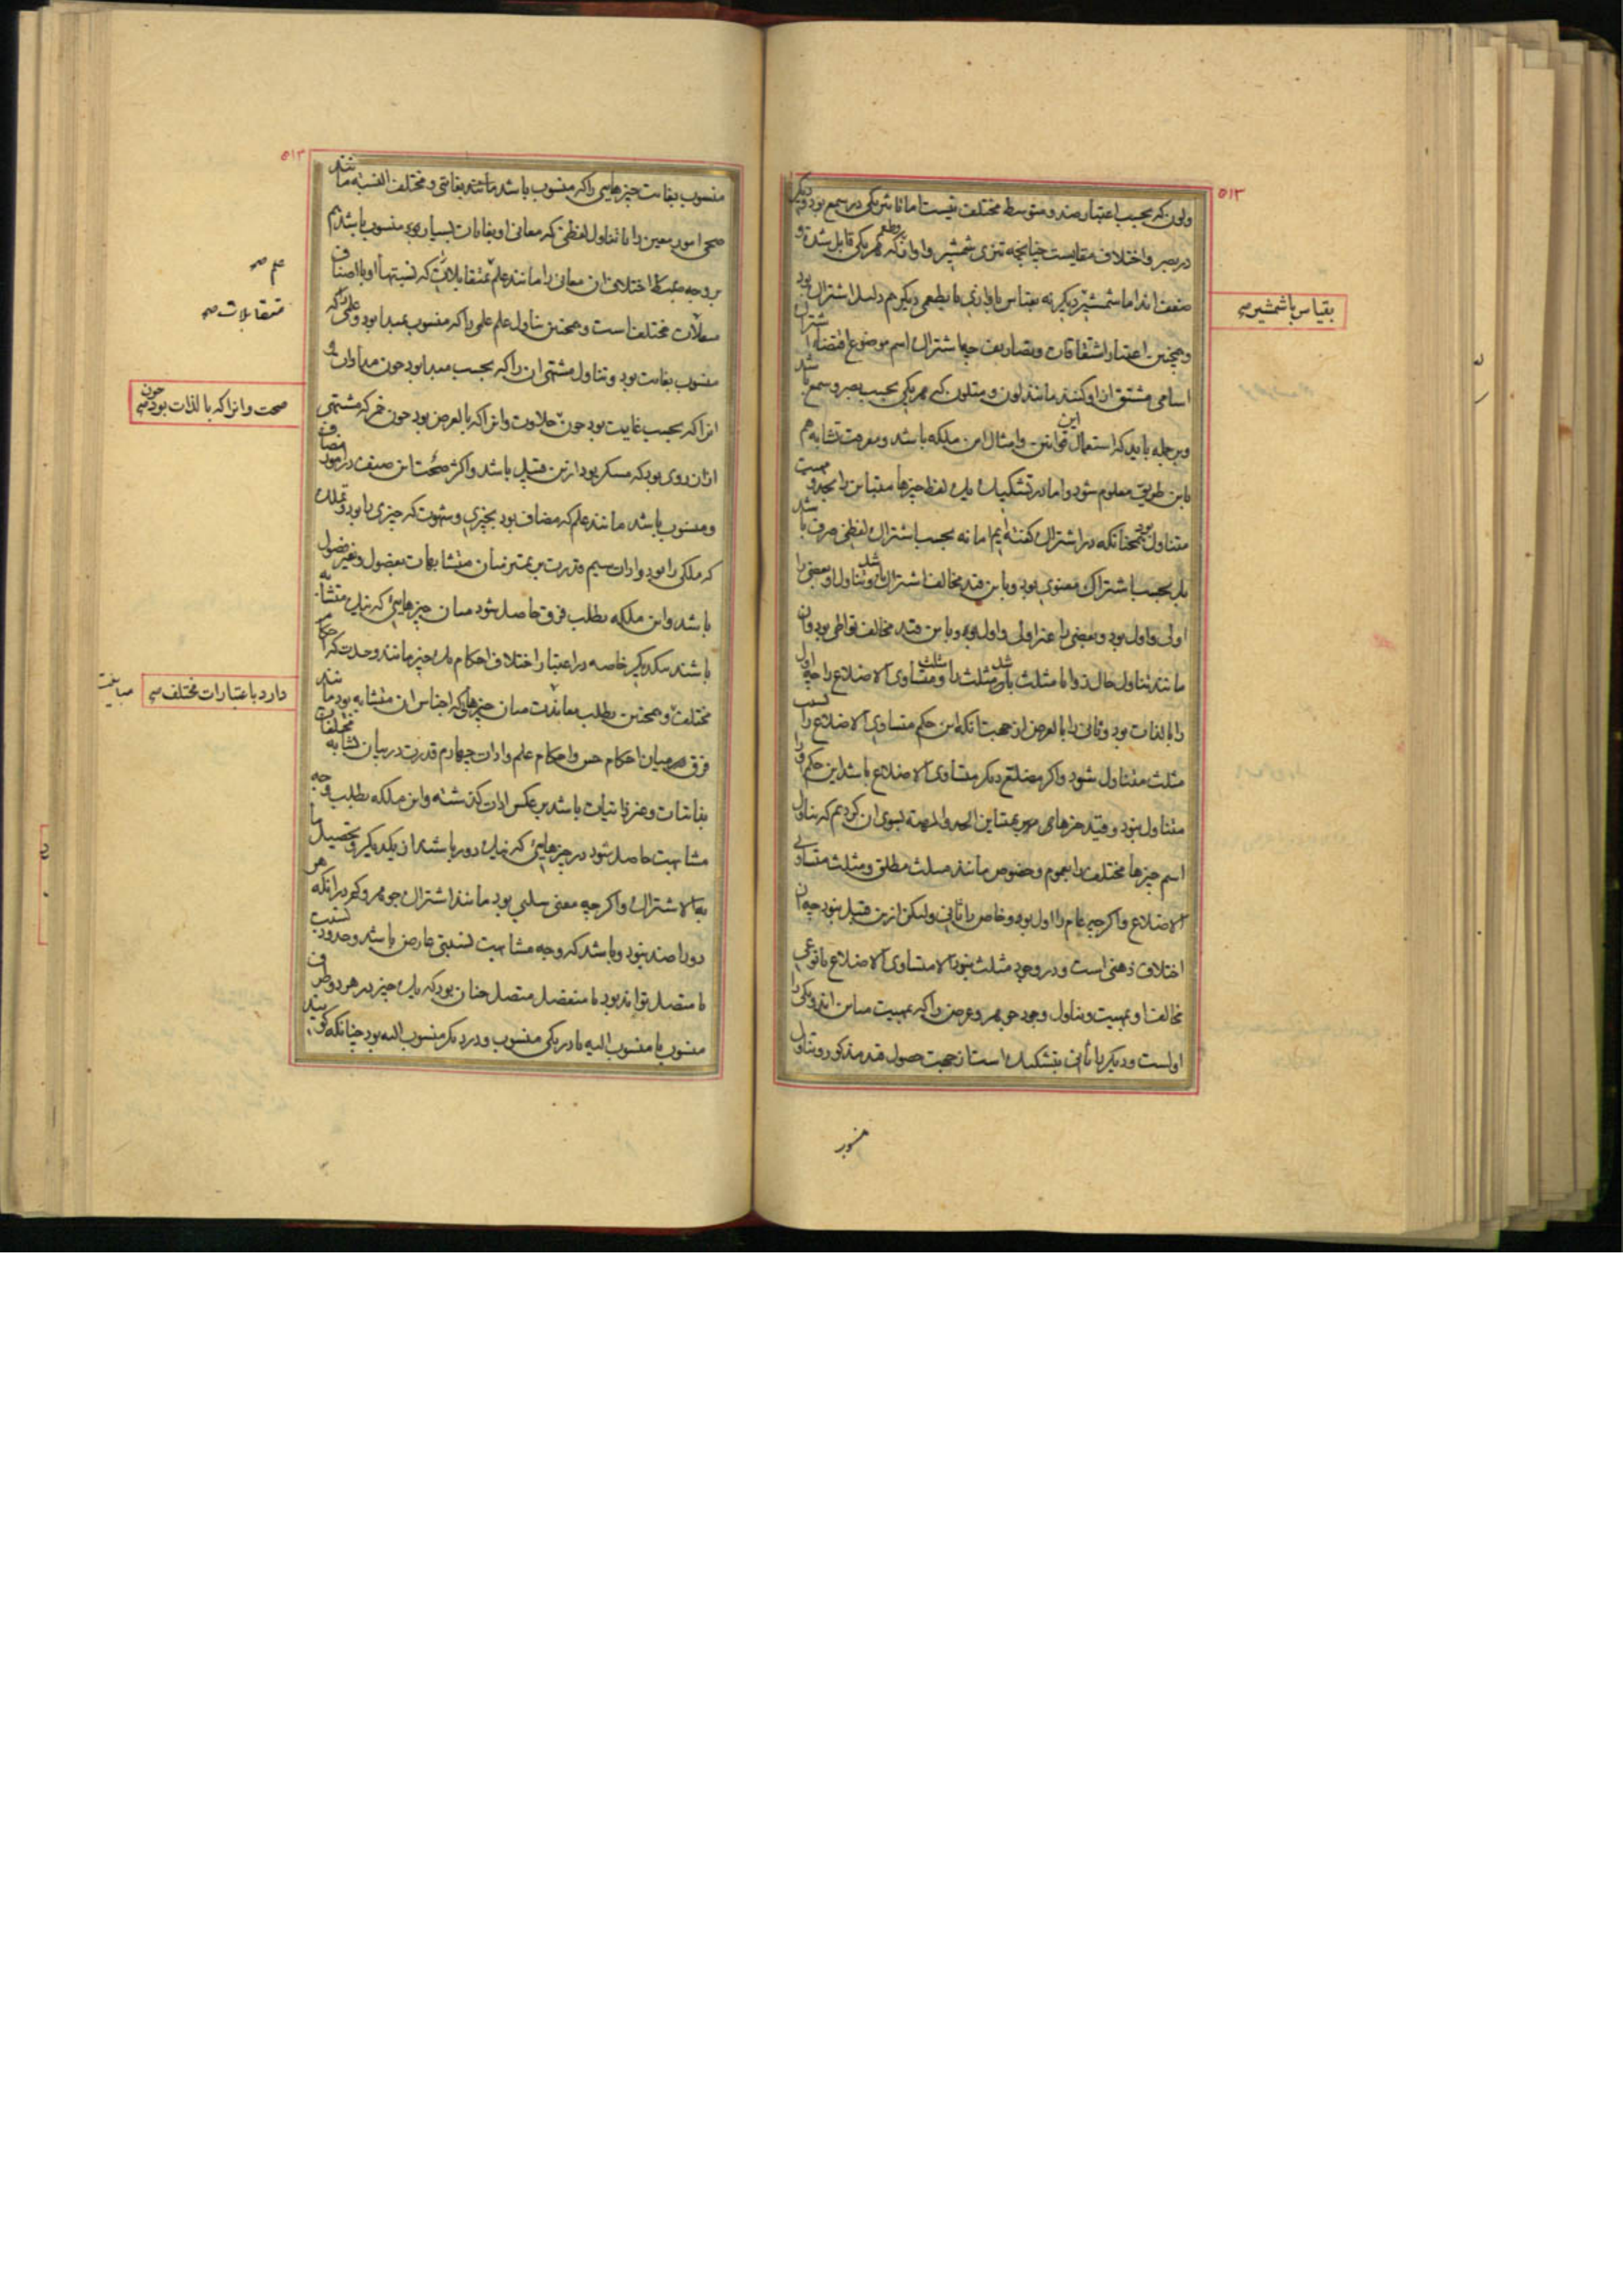 ۵۱۳
ولون که بحسب اعتبار ضد و متوسط مختلف نیست اما تأثیر یکی در سمع بود و دیگری
در بصر و اختلاف مقایست چنانچه تیزی شمشیر و آواز و طعم که هر یکی قابل شدة و
ضعف‌اند اما شمشیر دیگر نه بقیاس با آوازی یا بطعمی دیگر هم دلیل اشتراک بود
بقیاس با شمشیر صح
و همچنین اعتبار اشتقاقات و تصاریف چه اشتراک اسم موضوع اقتضاء اشتراک
اسامی مشتق از او کند مانند لون و متلون که هر یکی بحسب بصر و سمع باشد
و بر جمله باید که استعمال این قوانین و امثال این ملکه باشد و معرفت تشابه هم
باین طریق معلوم شود و اما در تشکیک یک لفظ چیزها متباین را بحد و مهیت
متناول بود همچنانکه در اشتراک گفته‌ایم اما نه بحسب اشتراک لفظی صرف باشد
بل بحسب اشتراک معنوی بود و باین قید مخالف اشتراک باشد و تناول او بعضی را
اولی و اول بود و بعضی را غیر اولی و اول بود و باین قید مخالف تواطی بود و آن
مانند تناول حال زوایا مثلث باشد مر مثلث را و مثلث متساوی الاضلاع را چه اول
را بالذات بود و ثانی را بالعرض از جهت آنکه این حکم متساوی الاضلاع را بسبب
مثلث متناول شود و اگر مضلع دیگر متساوی الاضلاع باشد این حکم او را
متناول نبود و قید چیزهای متباین الحد والمهیة بسوی آن کردیم که تناول
اسم چیزها مختلف را بعموم و خصوص مانند مثلث مطلق و مثلث متساوی
الاضلاع و اگرچه عام را اول بود و خاص را ثانی ولیکن ازین قبیل نبود چه آن
اختلاف ذهنی است و در وجود مثلث نبود الا متساوی الاضلاع یا نوعی
مخالف او بمهیت و تناول وجود جوهر و عرض را که بمهیت مباین‌اند و یکی را
اولست و دیگر را ثانی بتشکیک است از جهت حصول قید مذکور و تناول
منسوب
۵۱۴
منسوب بغایت چیزهایی را که منسوب باشد مانند بغایتی و مختلف النسبه مانند
صحی امور معین را یا تناول لفظی که معانی او بغایات بسیار بود منسوب باشد هم
بر وجه ضبط اختلاف آن معانی را مانند علم متقابلاتی که نسبتها او با اصناف
علم صح
متقابلات صح
متقابلات مختلف است و همچنین تناول علم علمی را که منسوب بمبدا بود و علمی را که
منسوب بغایت بود و تناول مشتهی آن را که بحسب مبدا بود چون مداوات و
آنرا که بحسب غایت بود چون حلاوت و آنرا که بالعرض بود چون خمر که مشتهی
صحت و انرا که بالذات بود چون صح
از آن روی بود که مسکر بود ازین قبیل باشد و اکثر صحت این صنف در امور مضاف
و منسوب باشد مانند علم که مضاف بود بچیزی و شهوت که چیزی را بود و تملک
که ملکی را بود و ادات سیم قدرت بر تمییز میان متشابهات بفصول و غیر فصول
باشد و این ملکه بطلب فرق حاصل شود میان چیزهایی که نیک متشابه
باشند بیکدیگر خاصه در اعتبار اختلاف احکام یک چیز مانند وحدت که احکام
مختلف و همچنین بطلب مباینت میان چیزهایی که اجناس آن متشابه بود مانند
دارد باعتبارات مختلف صح
مباینت
فرق میان احکام حس و احکام علم و ادات چهارم قدرت در بیان تشابه مختلفات
بذاتیات و غیر ذاتیات باشد بر عکس ادات گذشته و این ملکه بطلب وجه
مشابهت حاصل شود در چیزهایی که نیک دور باشند از یکدیگر و تحصیل ما
به الاشتراک و اگرچه معنی سلبی بود مانند اشتراک جوهر و کم در آنکه هر
دو را ضد نبود و باشد که وجه مشابهت نسبتی عارض باشد و حدود نسبت
یا متصل تواند بود یا منفصل متصل چنان بود که یک چیز در هر دو طرف
منسوب یا منسوب الیه یا در یکی منسوب و در دیگر منسوب الیه بود چنانکه گویند